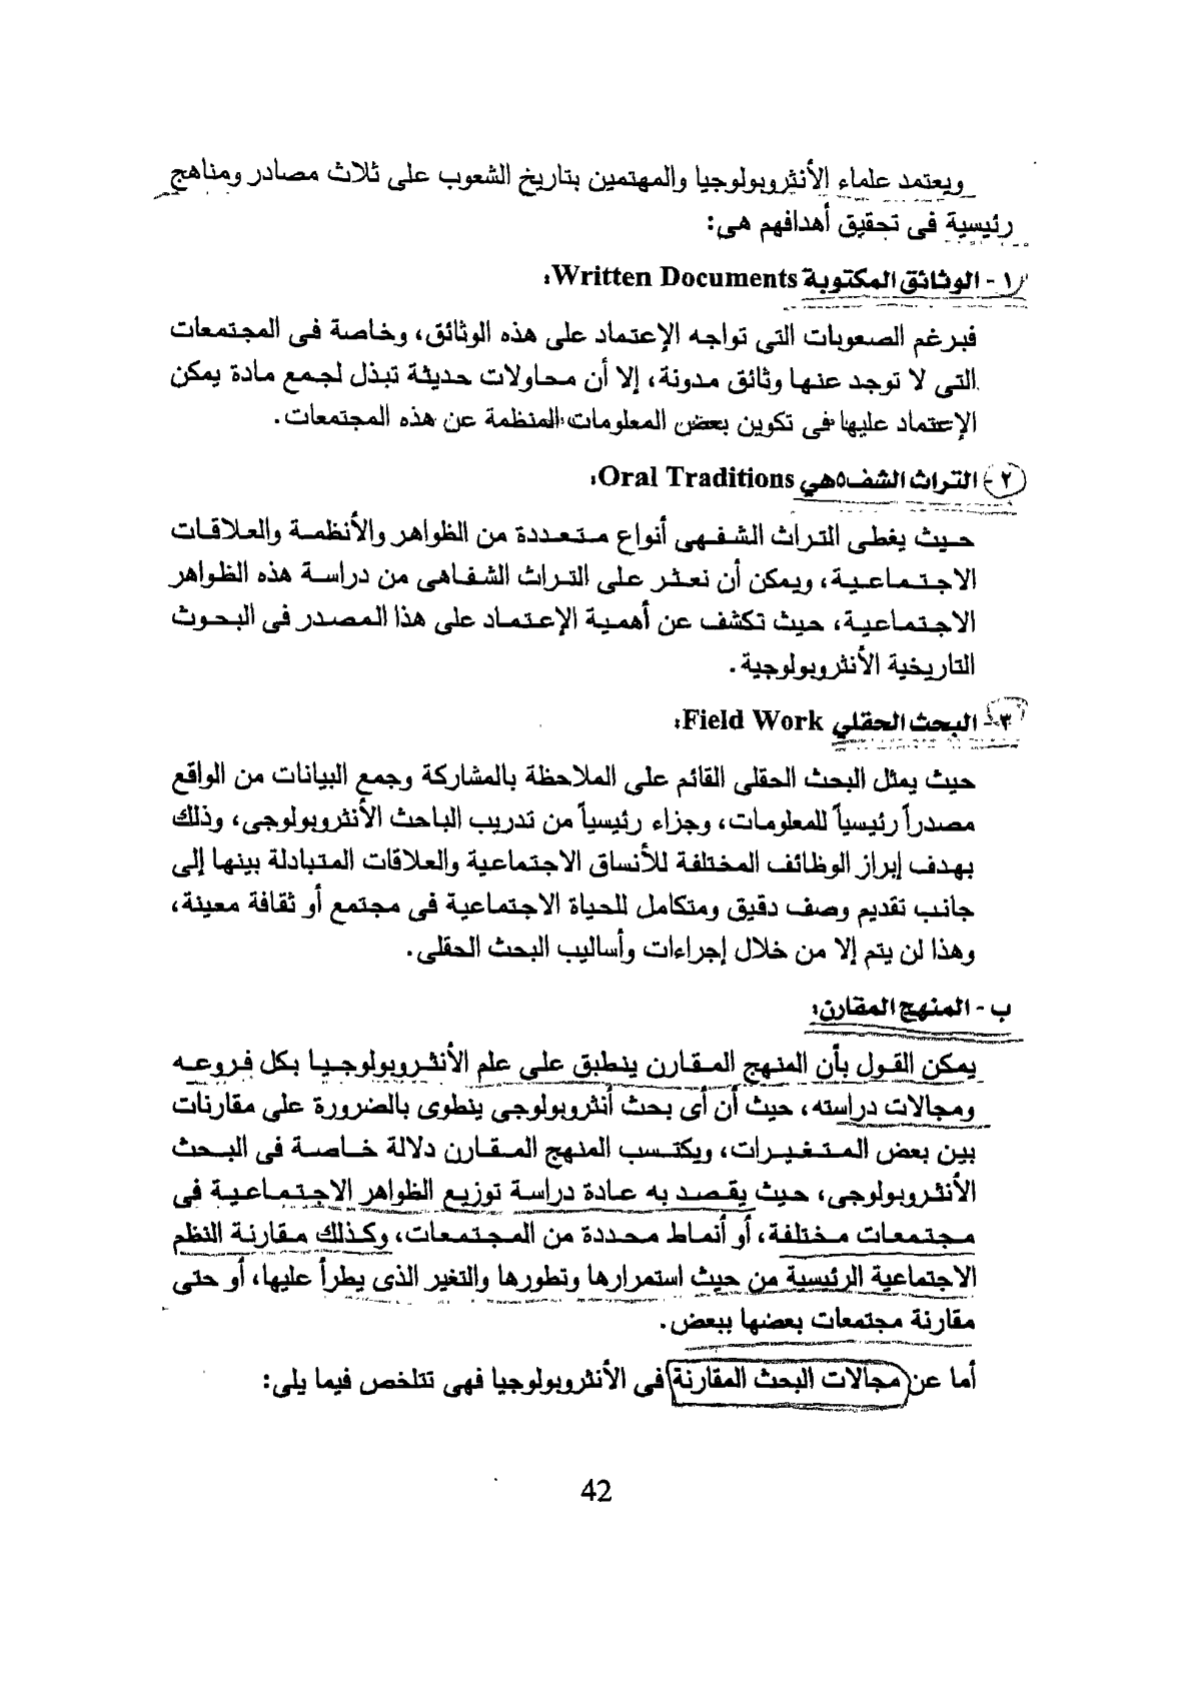 ويعتمد علماء الأنثروبولوجيا والمهتمين بتاريخ الشعوب على ثلاث مصادر ومناهج
رئيسية فى تحقيق أهدافهم هى:
١- الوثائق المكتوبة Written Documents:
فبرغم الصعوبات التى تواجه الإعتماد على هذه الوثائق، وخاصة فى المجتمعات
التى لا توجد عنها وثائق مدونة، إلا أن محاولات حديثة تبذل لجمع مادة يمكن
الإعتماد عليها فى تكوين بعض المعلومات المنظمة عن هذه المجتمعات.
٢- التراث الشفـ٥هي Oral Traditions:
حيث يغطى التراث الشفهى أنواع متعددة من الظواهر والأنظمة والعلاقات
الاجتماعية، ويمكن أن نعثر على التراث الشفاهى من دراسة هذه الظواهر
الاجتماعية، حيث تكشف عن أهمية الإعتماد على هذا المصدر فى البحوث
التاريخية الأنثروبولوجية.
٣- البحث الحقلي Field Work:
حيث يمثل البحث الحقلى القائم على الملاحظة بالمشاركة وجمع البيانات من الواقع
مصدراً رئيسياً للمعلومات، وجزاء رئيسياً من تدريب الباحث الأنثروبولوجى، وذلك
بهدف إبراز الوظائف المختلفة للأنساق الاجتماعية والعلاقات المتبادلة بينها إلى
جانب تقديم وصف دقيق ومتكامل للحياة الاجتماعية فى مجتمع أو ثقافة معينة،
وهذا لن يتم إلا من خلال إجراءات وأساليب البحث الحقلى.
ب- المنهج المقارن:
يمكن القول بأن المنهج المقارن ينطبق على علم الأنثروبولوجيا بكل فروعه
ومجالات دراسته، حيث أن أى بحث أنثروبولوجى ينطوى بالضرورة على مقارنات
بين بعض المتغيرات، ويكتسب المنهج المقارن دلالة خاصة فى البحث
الأنثروبولوجى، حيث يقصد به عادة دراسة توزيع الظواهر الاجتماعية فى
مجتمعات مختلفة، أو أنماط محددة من المجتمعات، وكذلك مقارنة النظم
الاجتماعية الرئيسية من حيث استمرارها وتطورها والتغير الذى يطرأ عليها، أو حتى
مقارنة مجتمعات بعضها ببعض.
أما عن مجالات البحث المقارنة فى الأنثروبولوجيا فهى تتلخص فيما يلى:
42